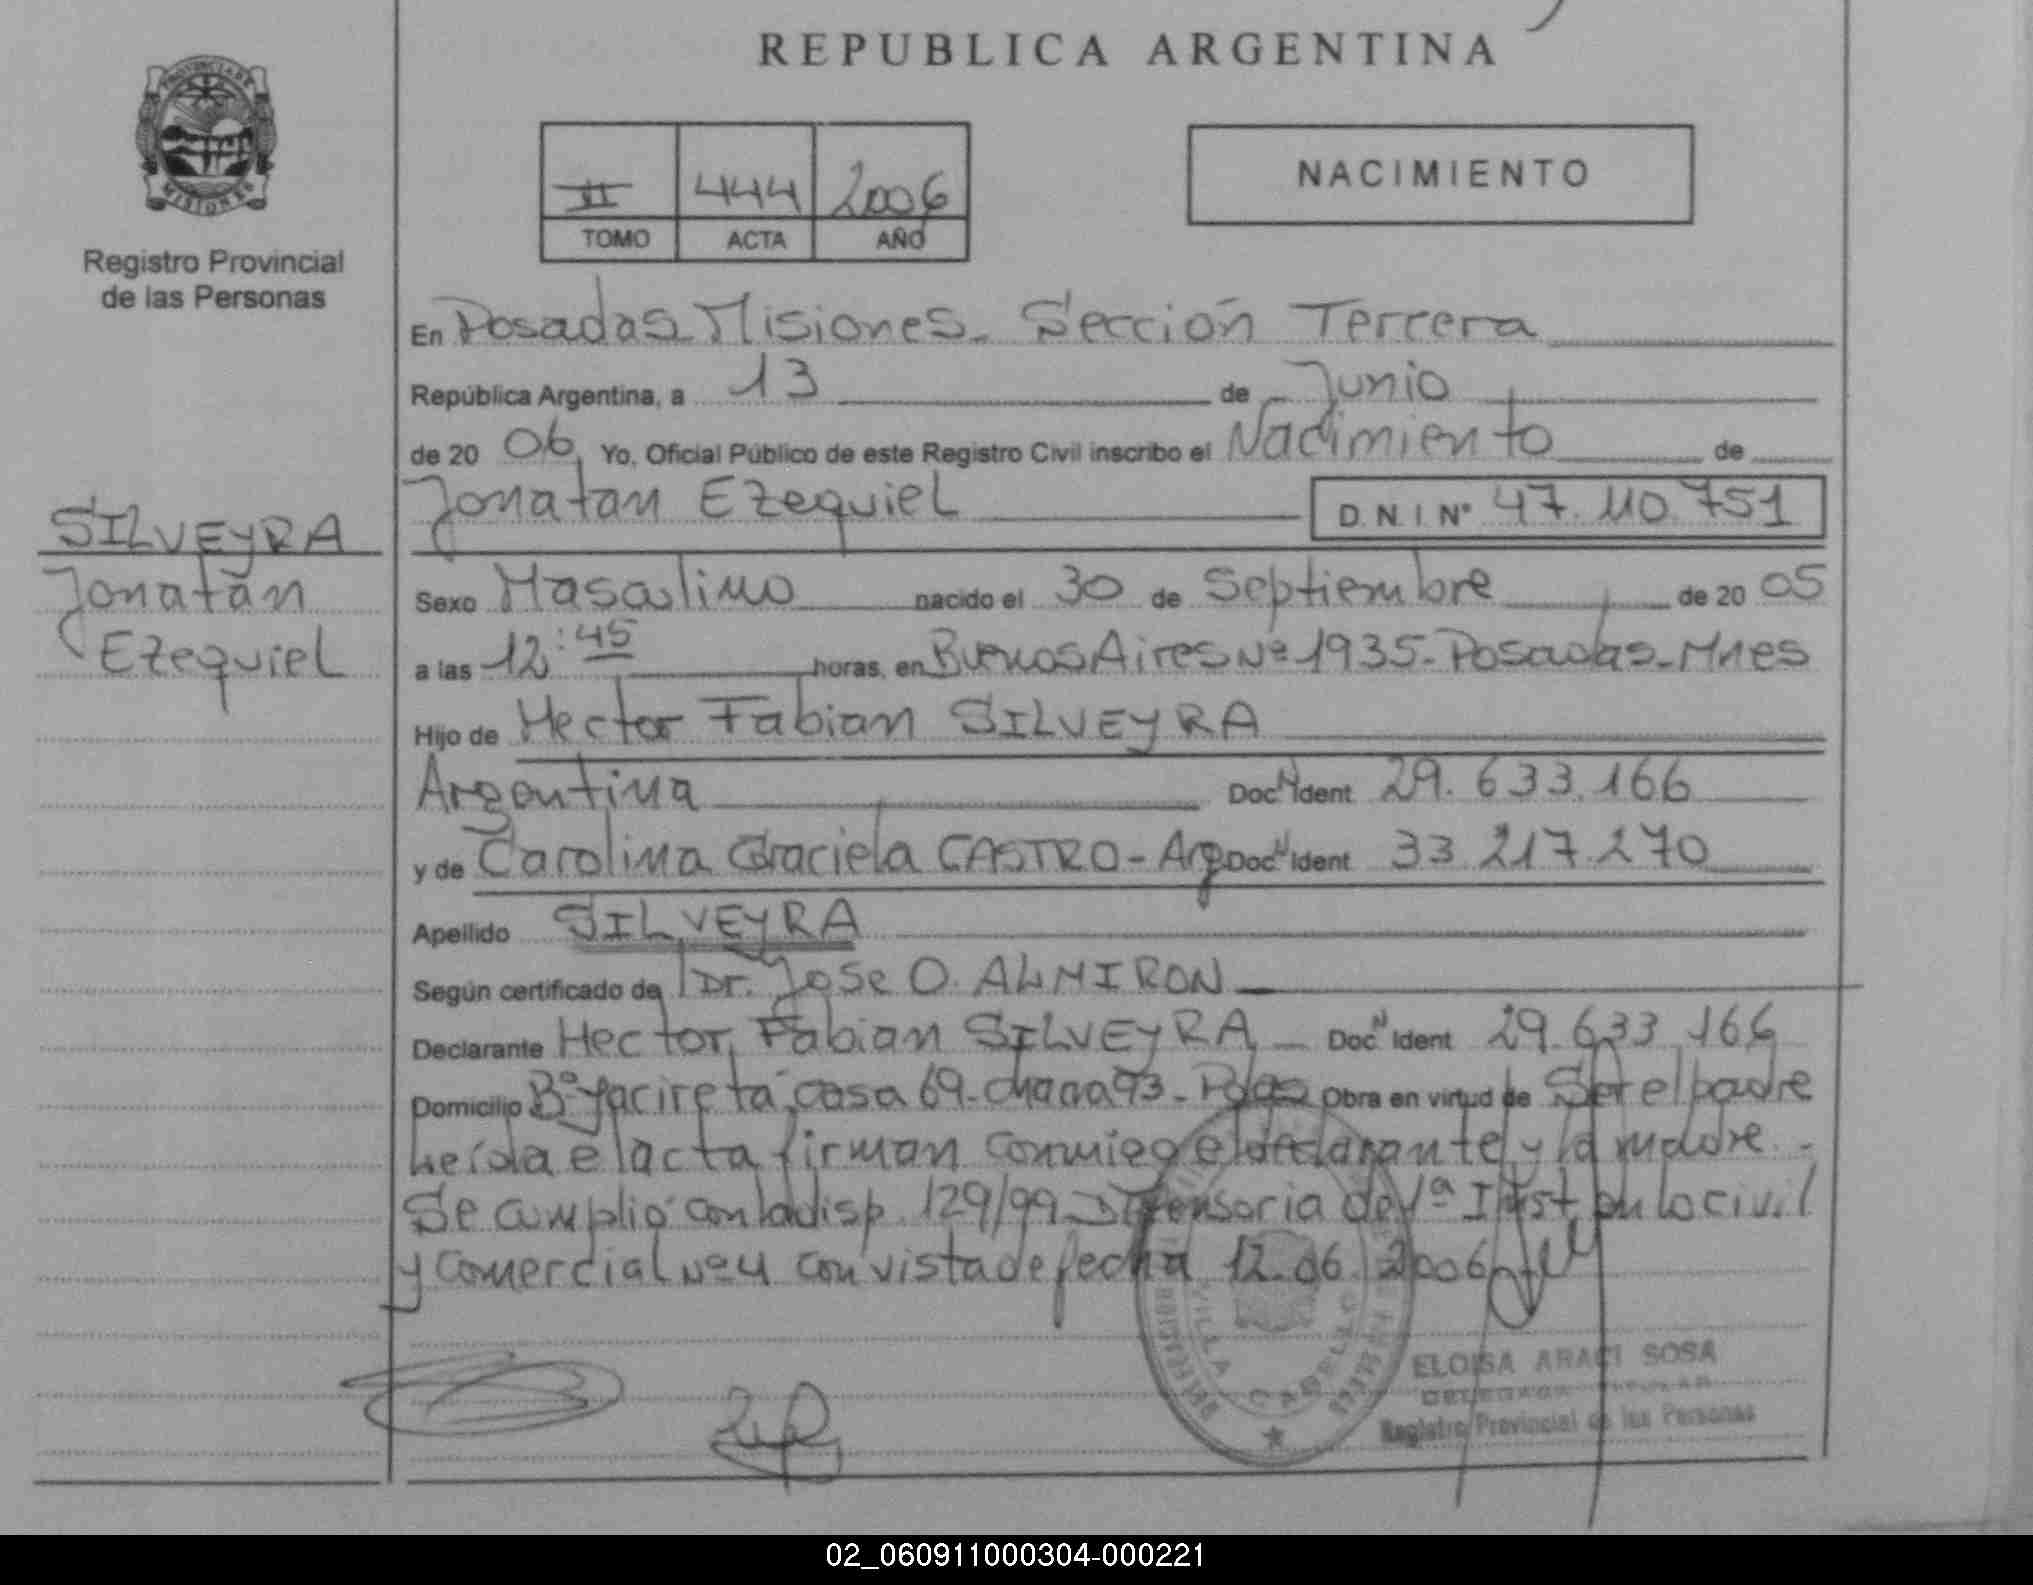 REPUBLICA ARGENTINA
PROVINCIA DE
MISIONES
Registro Provincial
de las Personas
II 444 2006
TOMO ACTA AÑO
NACIMIENTO
En Posadas Misiones. Sección Tercera
República Argentina, a 13 de Junio
de 20 06, Yo, Oficial Público de este Registro Civil inscribo el Nacimiento de
Jonatan Ezequiel D.N.I. Nº 47.110.751
SILVEYRA
Jonatan
Ezequiel
Sexo Masculino nacido el 30 de Septiembre de 20 05
a las 12:45 horas, en Buenos Aires Nº 1935-Posadas-Mnes
Hijo de Hector Fabian SILVEYRA
Argentina Doc N Ident 29.633.166
y de Carolina Graciela CASTRO - Arg Doc N Ident 33.217.270
Apellido SILVEYRA
Según certificado de Dr. Jose O. ALMIRON
Declarante Hector Fabian SILVEYRA Doc N Ident 29.633.166
Domicilio Bº Yacireta casa 69-chacra 93-Pdas Obra en virtud de Ser el padre
Leída el acta firman conmigo el declarante y la madre.-
Se cumplio con la disp. 129/99 Defensoria de 1ª Inst en lo civil
y Comercial Nº 4 con vista de fecha 12.06.2006
VILLA CABELLO
ELOISA ARACI SOSA
DELEGADA TITULAR
Registro Provincial de las Personas
02_060911000304-000221